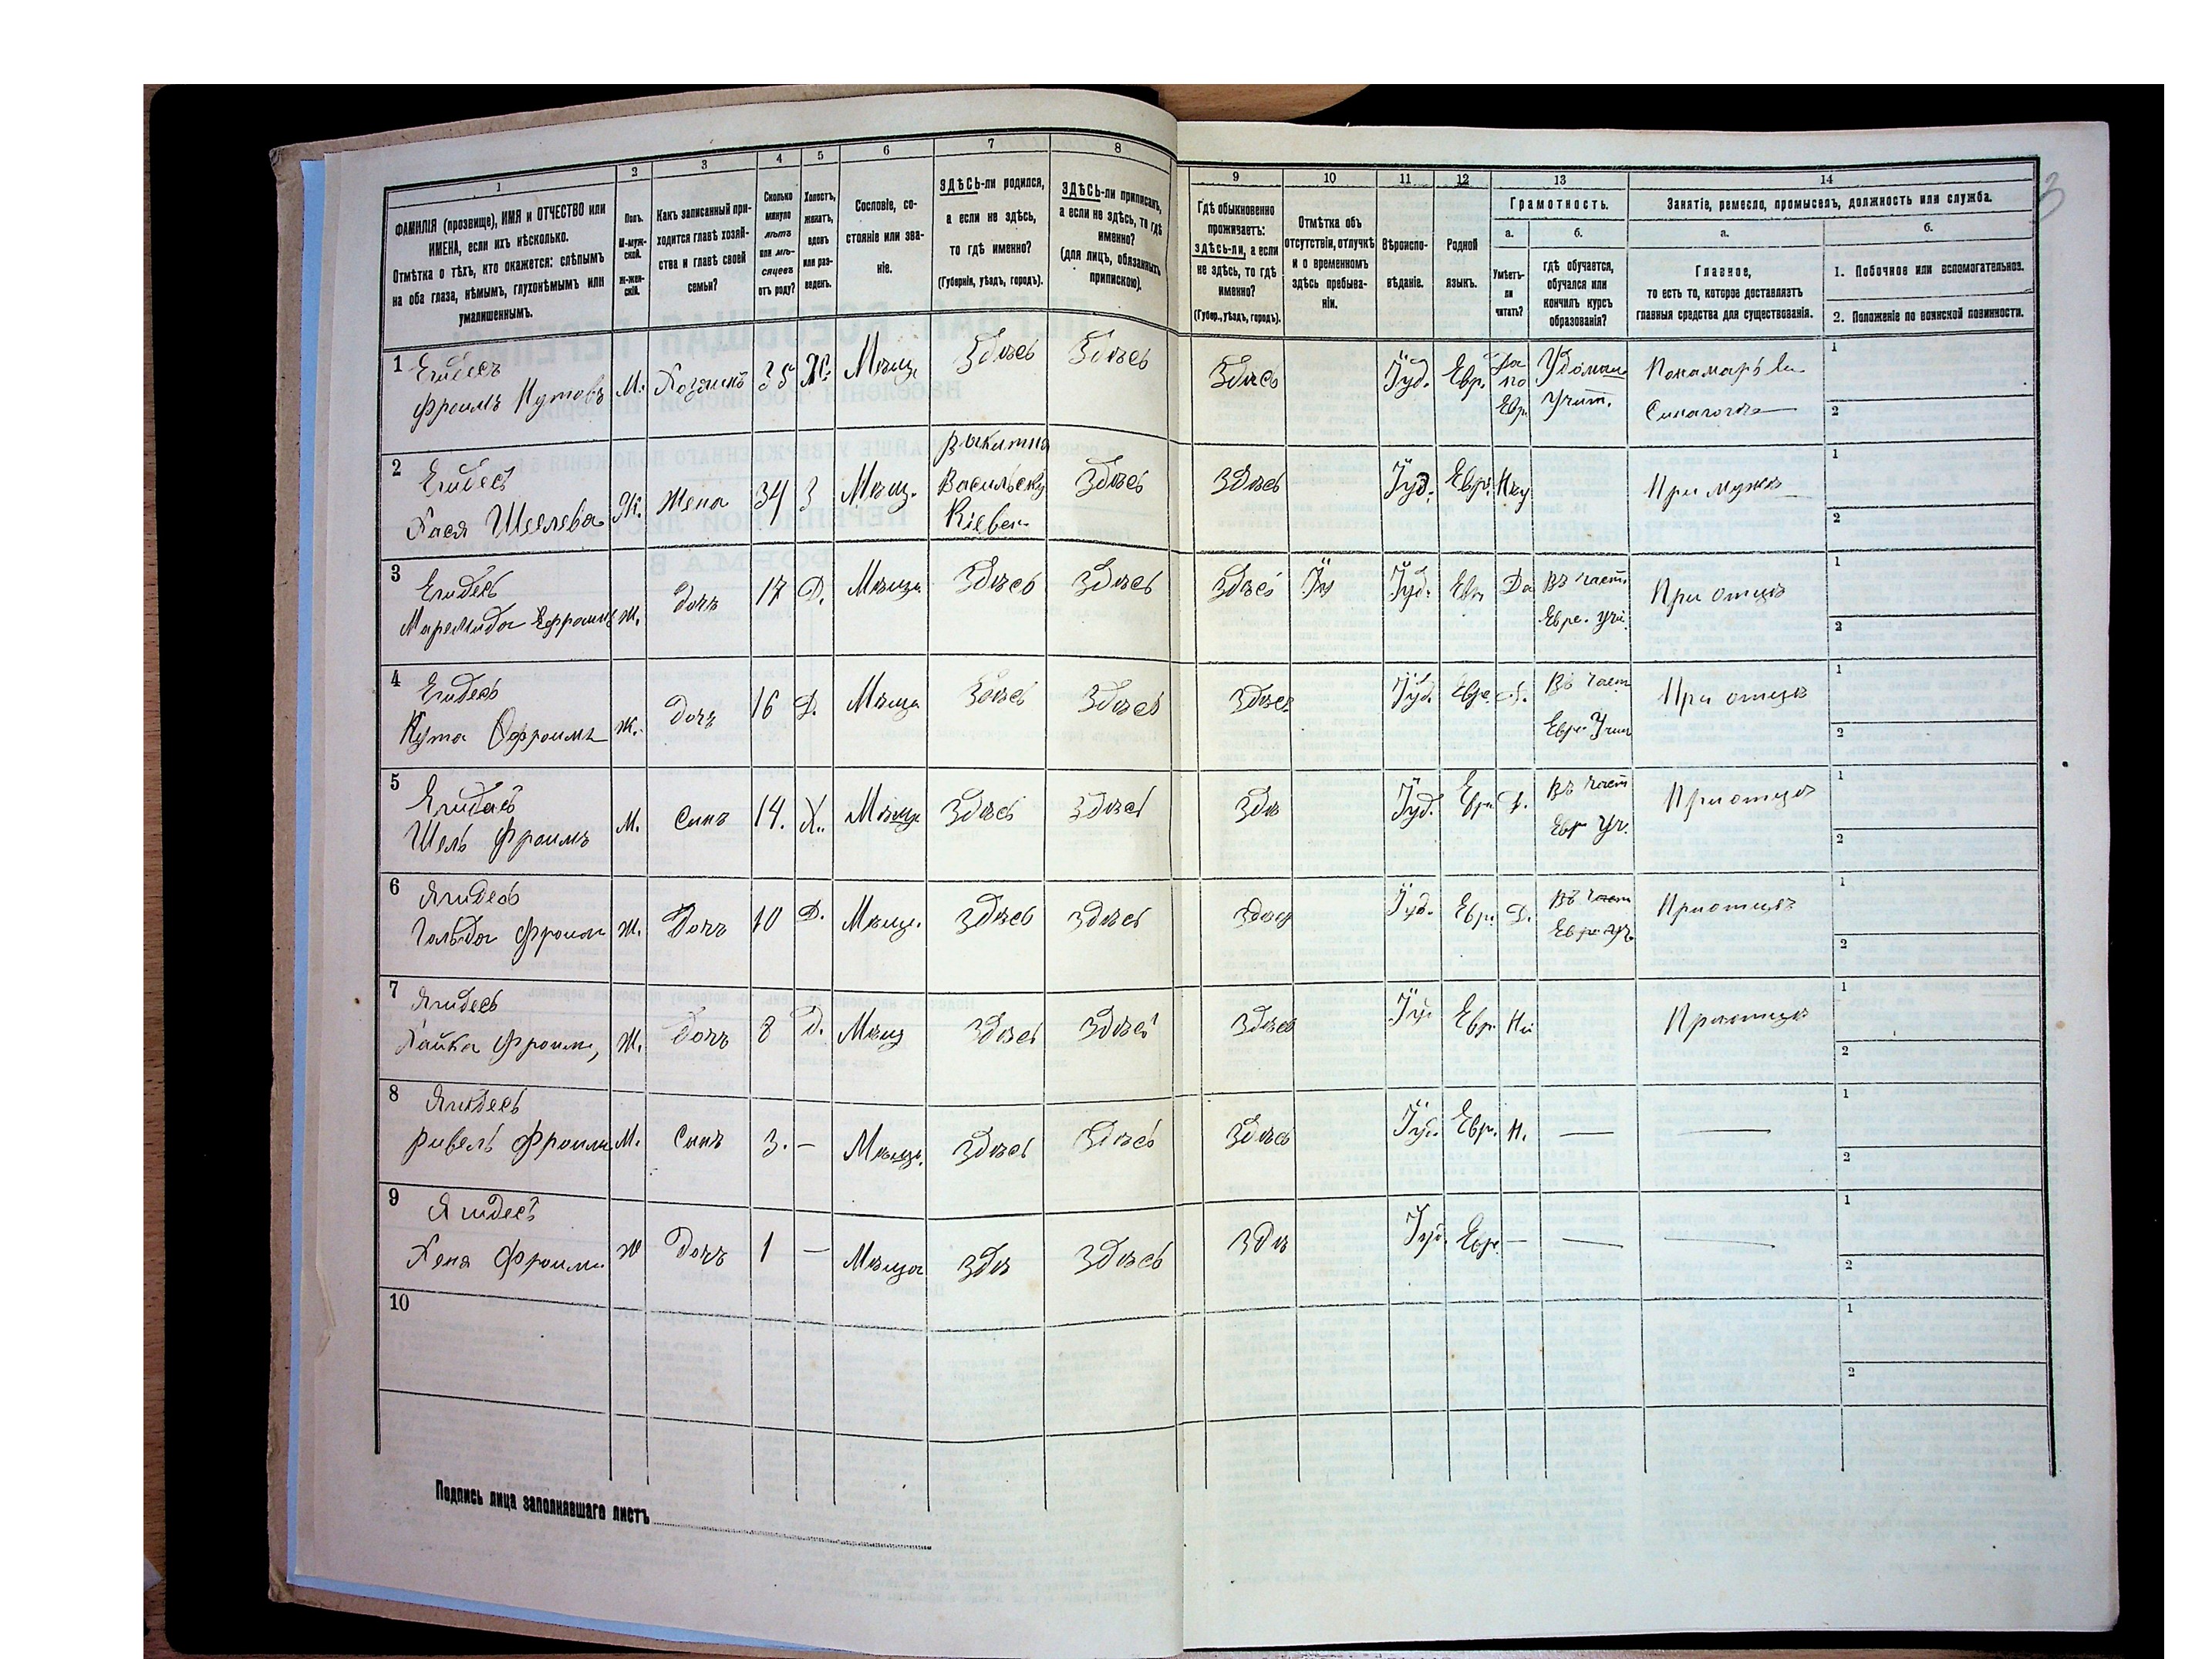 3
1
2
3
4
5
6
7
8
9
10
11
12
13
14
ФАМИЛІЯ (прозвище), ИМЯ и ОТЧЕСТВО или
ИМЕНА, если ихъ нѣсколько.
Отмѣтка о тѣхъ, кто окажется: слѣпымъ
на оба глаза, нѣмымъ, глухонѣмымъ или
умалишеннымъ.
Полъ.
М-муж-
ской.
Ж-жен-
скій.
Какъ записанный при-
ходится главѣ хозяй-
ства и главѣ своей
семьи?
Сколько
минуло
лѣтъ
или мѣ-
сяцевъ
отъ роду?
Холостъ,
женатъ,
вдовъ
или раз-
веденъ.
Сословіе, со-
стояніе или зва-
ніе.
ЗДѢСЬ-ли родился,
а если не здѣсь,
то гдѣ именно?
(Губернія, уѣздъ, городъ).
ЗДѢСЬ-ли приписанъ,
а если не здѣсь, то гдѣ
именно?
(для лицъ, обязанныхъ
припискою).
Гдѣ обыкновенно
проживаетъ:
здѣсь-ли, а если
не здѣсь, то гдѣ
именно?
(Губер., уѣздъ, городъ).
Отмѣтка объ
отсутствіи, отлучкѣ
и о временномъ
здѣсь пребыва-
ніи.
Вѣроиспо-
вѣданіе.
Родной
языкъ.
Грамотность.
а.
Умѣетъ-
ли
читать?
б.
гдѣ обучается,
обучался или
кончилъ курсъ
образованія?
Занятіе, ремесло, промыселъ, должность или служба.
а.
Главное,
то есть то, которое доставляетъ
главныя средства для существованія.
б.
1. Побочное или вспомогательное.
2. Положеніе по воинской повинности.
1 Егидесъ
Фроимъ М. 35 Ж. Мѣщ. Здѣсь Здѣсь Здѣсь Іуд. Евр. Да по Евр. Учит.
1
2
2 Егидесъ
Хася Шеелева Ж. Жена 34 З Мѣщ. Васильску Кіевск Здѣсь Здѣсь Іуд. Евр. При мужѣ
1
2
3 Егидесь
Ж. Дочь 17 Д. Мѣща Здѣсь Здѣсь Здѣсь Іуд. Евр Да Въ част Евре. Учи. При отцѣ
1
2
4 Егидесь
Ж. Дочь 16 Д. Мѣща Здѣсь Здѣсь Здѣсь Іуд. Евре. Въ част Евре. Учит При отцѣ
1
2
5
Шель Фроимъ М. Сынъ 14. Х. Мѣще Здѣсь Здѣсь Здѣ Іуд. Евре Д. Въ част Евр Уч. При отцѣ
1
2
6 Ягидесь
Гольда Фроим Ж. Дочь 10 Д. Мѣщ. Здѣсь Здѣсь Іуд. Евр. Д. Въ част Евре уч. При отцѣ
1
2
7 Ягидесь
Хайка Фроим, Ж. Дочь 8 Д. Мѣщ Здѣсь Здѣсь Здѣсь Іуд Евр. Не При отцѣ
1
2
8 Ягидесь
Фроим М. Сынъ 3. — Мѣщ. Здѣсь Здѣсь Здѣсь Іуд. Евр. Н. — —
1
2
9 Ягидесь
Хеня Фроим Ж Дочь 1 — Мѣща Здѣ Здѣсь Здѣ Іуд. Евре. — — —
1
2
10
1
2
Подпись лица заполнявшаго листъ